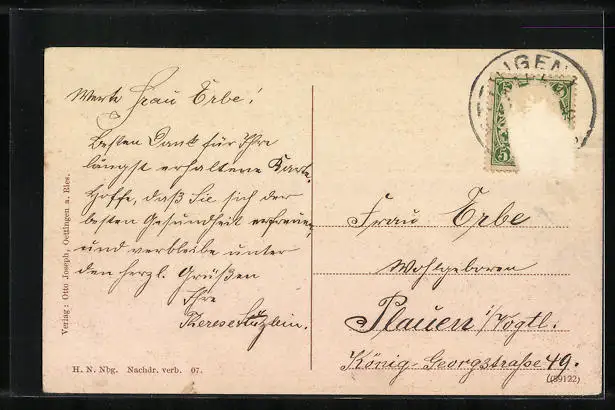 Werte Frau Erbe!
Besten Dank für Ihre
längst erhaltene Karte.
Hoffe, daß Sie sich der
besten Gesundheit erfreuen,
und verbleibe unter
den herzl. Grüßen
Ihre
Therese
Verlag: Otto Joseph, Oettingen a. Ries.
H. N. Nbg. Nachdr. verb. 07.
NGEN
5
Frau Erbe
Wohlgeboren
Plauen i/Vogtl.
König-Georgstraße 49.
(59122)